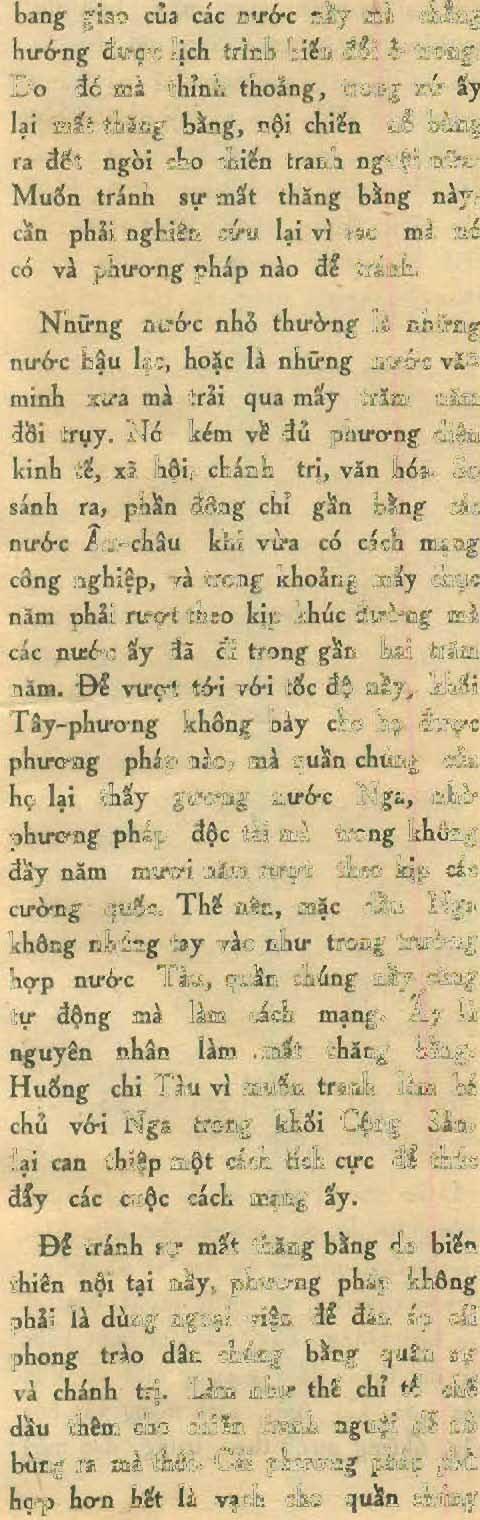 bang giao của các nước nầy mà chẳng
hướng được lịch trình biến đổi ở trong.
Do đó mà thỉnh thoảng, trong xứ ấy
lại mất thăng bằng, nội chiến nổ bùng
ra đốt ngòi cho chiến tranh nguội nữa.
Muốn tránh sự mất thăng bằng này,
cần phải nghiên cứu lại vì sao mà nó
có và phương pháp nào để tránh.
Những nước nhỏ thường là những
nước hậu lạc, hoặc là những nước văn
minh xưa mà trải qua mấy trăm năm
đồi trụy. Nó kém về đủ phương diện
kinh tế, xã hội, chánh trị, văn hóa. So
sánh ra, phần đông chỉ gần bằng các
nước Âu-châu khi vừa có cách mạng
công nghiệp, và trong khoảng mấy chục
năm phải rượt theo kịp khúc đường mà
các nước ấy đã đi trong gần hai trăm
năm. Để vượt tới với tốc độ nầy, khối
Tây-phương không bày cho họ được
phương pháp nào, mà quần chúng của
họ lại thấy gương nước Nga, nhờ
phương pháp độc tài mà trong không
đầy năm mươi năm rượt theo kịp các
cường quốc. Thế nên, mặc dầu Nga
không nhúng tay vào như trong trường
hợp nước Tàu, quần chúng nầy cũng
tự động mà làm cách mạng. Ấy là
nguyên nhân làm mất thăng bằng.
Huống chi Tàu vì muốn tranh làm bá
chủ với Nga trong khối Cộng Sản,
lại can thiệp một cách tích cực để thúc
đẩy các cuộc cách mạng ấy.
Để tránh sự mất thăng bằng do biến
thiên nội tại nầy, phương pháp không
phải là dùng ngoại viện để đàn áp cái
phong trào dân chúng bằng quân sự
và chánh trị. Làm như thế chỉ tổ chế
dầu thêm cho chiến tranh nguội để nó
bùng ra mà thôi. Cái phương pháp phù
hợp hơn hết là vạch cho quần chúng